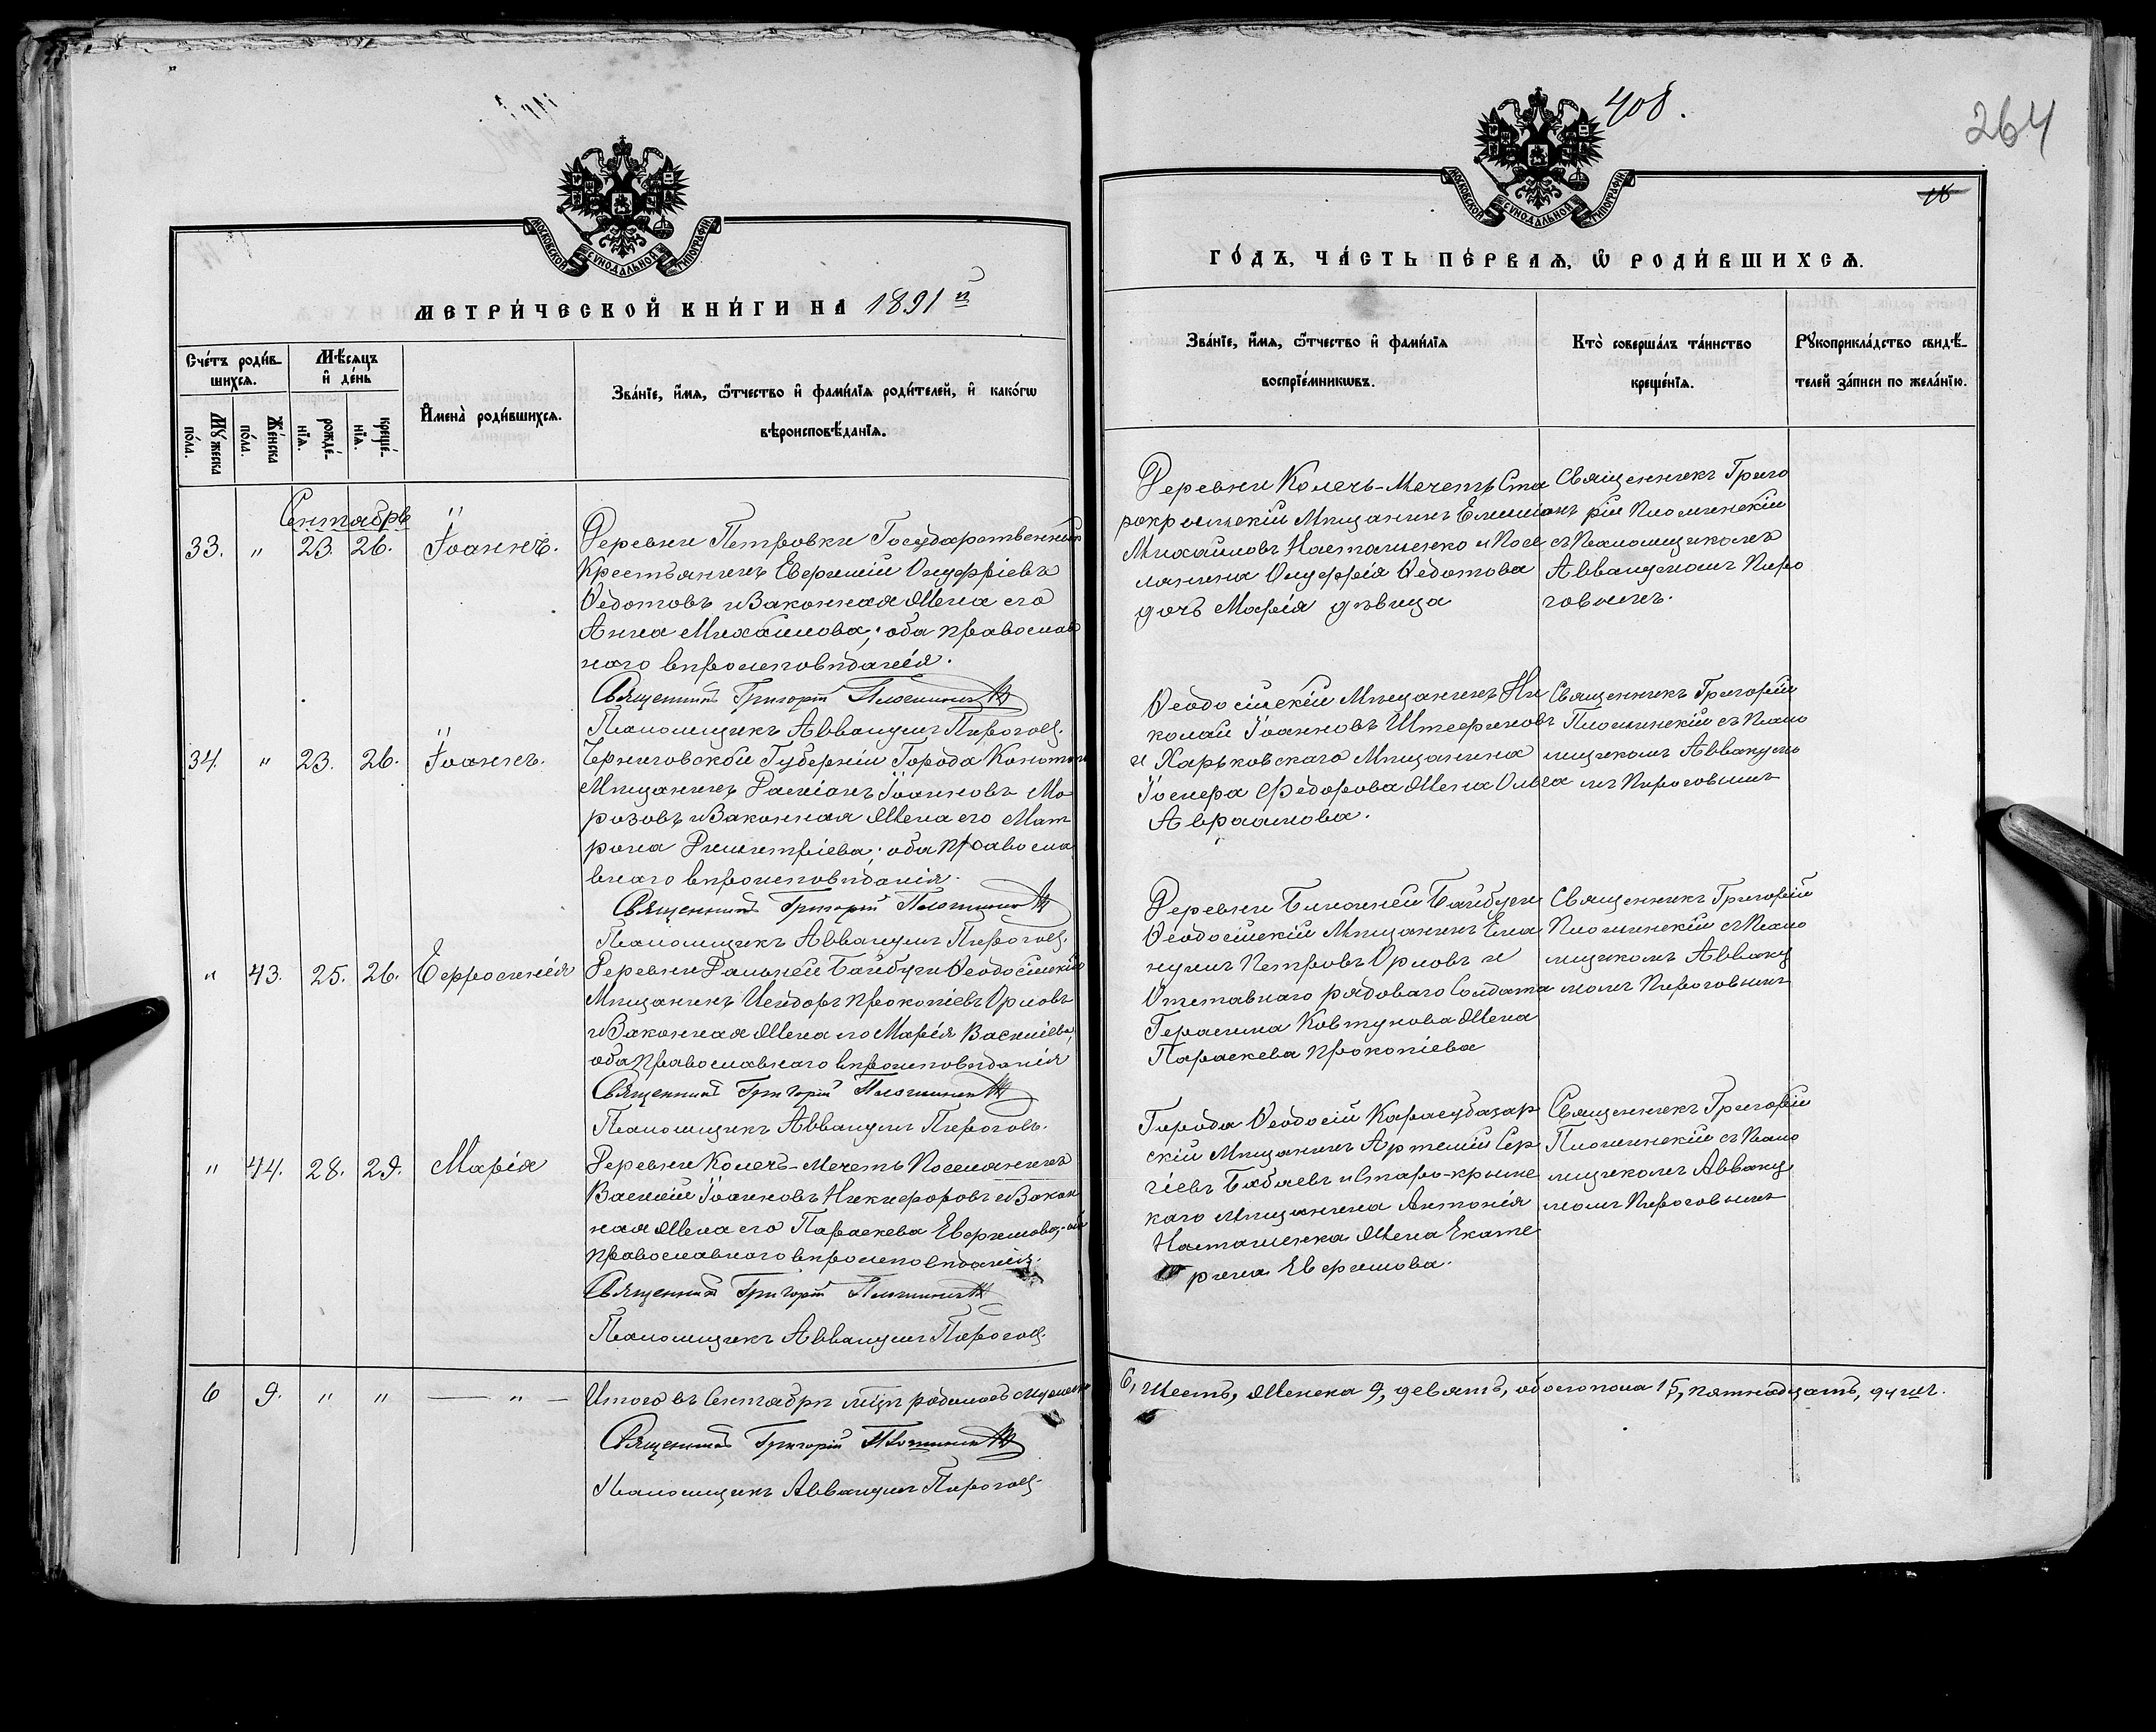 408.
264
16
МОСКОВСКОЙ СѴНОДАЛЬНОЙ ТИПОГРАФІИ
МОСКОВСКОЙ СѴНОДАЛЬНОЙ ТИПОГРАФІИ
МЕТРИ́ЧЕСКОЙ КНИ́ГИ НА 1891й
Сче́тъ роди́вшихсѧ.
Мѣ́сѧцъ и҆ де́нь
Мꙋ́жеска по́ла.
Же́нска по́ла.
рожде́нїѧ.
креще́нїѧ.
И҆мена̀ роди́вшихсѧ.
Зва́нїе, и҆́мѧ, ѻ҆́тчество и҆ фами́лїѧ роди́телей, и҆ како́гѡ
вѣроисповѣ́данїѧ.
Сентябрь "
33. " 23. 26. Іоаннъ. Деревни Петровки Государственный
Крестьянинъ Евфимій Онуфріевъ
Ѳедотовъ и Законная Жена его
Анна Михайлова; оба православ
наго вѣроисповѣданія.
Священникъ Григорій Плошинскій
Псаломщикъ Аввакумъ Пироговъ.
34. " 23. 26. Іоаннъ. Черниговской Губерніи Города Конотопа
Мѣщанинъ Даміанъ Іоанновъ Мо
розовъ и Законная Жена его Мат
рона Димитріева; оба Правосла
внаго вѣроисповѣданія.
Священникъ Григорій Плошинскій
Псаломщикъ Аввакумъ Пироговъ.
" 43. 25. 26. Ефросинія Деревни Дальней Байбуги Ѳеодосійскій
Мѣщанинъ Исидоръ Прокопіевъ Орловъ
и Законная Жена его Марія Василіева,
оба Православнаго вѣроисповѣданія
Священникъ Григорій Плошинскій
Псаломщикъ Аввакумъ Пироговъ.
" 44. 28. 29. Марія Деревни Колечь-Мечеть Поселянинъ
Василій Іоанновъ Никифоровъ и Закон
ная Жена его Параскева Евфимова, оба
Православнаго вѣроисповѣданія.
Священникъ Григорій Плошинскій
Псаломщикъ Аввакумъ Пироговъ.
6 9. " " — " — Итого въ Сентябрѣ мцѣ родилось мужеска
Священникъ Григорій Плошинскій
Псаломщикъ Аввакумъ Пироговъ.
ГО́ДЪ, ЧА́СТЬ ПЕ́РВАѦ, Ѡ҆ РОДИ́ВШИХСѦ.
Зва́нїе, и҆́мѧ, ѻ҆́тчество и҆ фами́лїѧ
воспрїе́мникѡвъ.
Кто̀ соверша́лъ та́инство
креще́нїѧ.
Рꙋкоприкла́дство свидѣ́-
телей за́писи по жела́нїю.
Деревни Колечь-Мечеть Ста
рокрымскій Мѣщанинъ Емиліанъ
Михайловъ Насташенко и Посе
лянина Онуфрія Ѳедотова
дочь Марія дѣвица
Священникъ Григо
рій Плошинскій
съ Псаломщикомъ
Аввакумомъ Пиро
говымъ.
Ѳеодосійскій Мѣщанинъ Ни
колай Іоанновъ Штефановъ
и Харьковскаго Мѣщанина
Іосифа Федорова Жена Ольга
Авраамова.
Священникъ Григорій
Плошинскій съ Псало
мщикомъ Аввакумо
мъ Пироговымъ
Деревни Ближней Байбуги
Ѳеодосійскій Мѣщанинъ Ема
нуилъ Петровъ Орловъ и
Отставнаго рядоваго Солдата
Герасима Ковтунова Жена
Параскева Прокопіева
Священникъ Григорій
Плошинскій съ Псало
мщикомъ Авваку
момъ Пироговымъ
Города Ѳеодосіи Карасубазар
скій Мѣщанинъ Артемій Сер
гіевъ Бабаевъ и Старо-крымс
каго Мѣщанина Антонія
Насташенка Жена Екате
рина Евфимова.
Священникъ Григорій
Плошинскій съ Псало
мщикомъ Авваку
момъ Пироговымъ
6, Шесть, Женска 9, девять, обоего пола 15, пятнадцать, душъ.